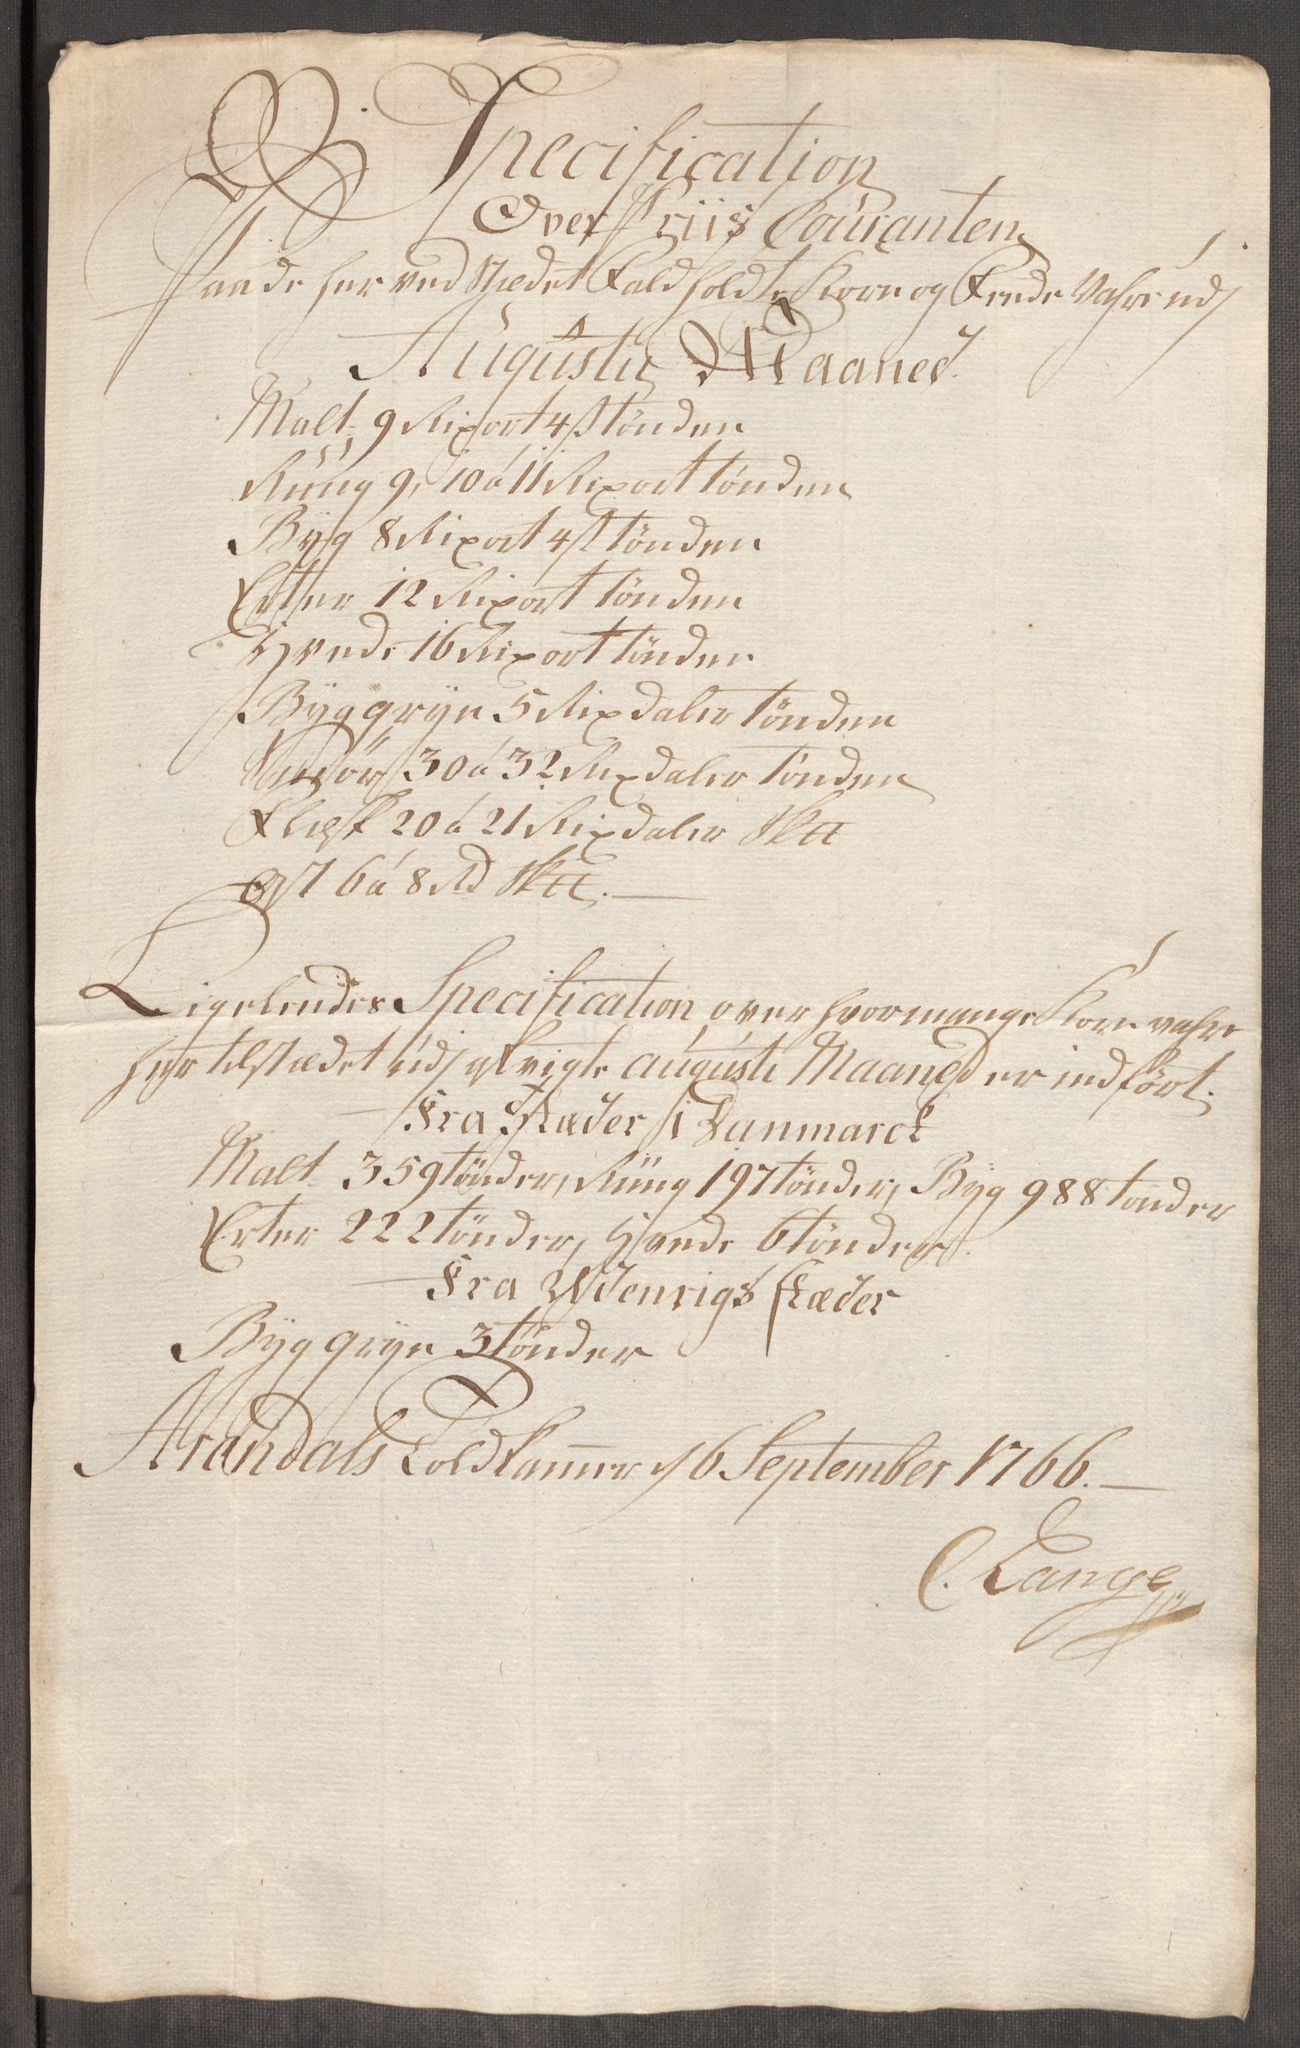 Specification
Over Priis Couranten
Paa de her ved Stædet Faldholdte Korn og Fede Vahre udj
Augusty Maaned.
Malt 9 Rixort 4 s tønden
Rüüg 9, 10 à 11 Rixort tønden
Byg 8 Rixort 4 s tønden
Erter 12 Rixort tønden
Hvede 16 Rixort tønden
Byggryn 5 Rixdaler tønden
Smør 30 à 32 Rixdaler tønden
Flesk 20 à 21 Rixdaler Sk℔
Ost 6 à 8 Rd Sk℔.
Ligeleedes Specification over hvormange Korn vahre
her til stædet udj afvigte Augusti Maaned er indført.
Fra Stæder i Danmarck
Malt 359 tønder, Rüüg 197 tønder, Byg 988 tønder
Erter 222 tønder, Hvede 6 tønder.
Fra Udenrigs stæder
Byggryn 3 tønder
Arendals Toldkammer d 6 September 1766.
C. Lange